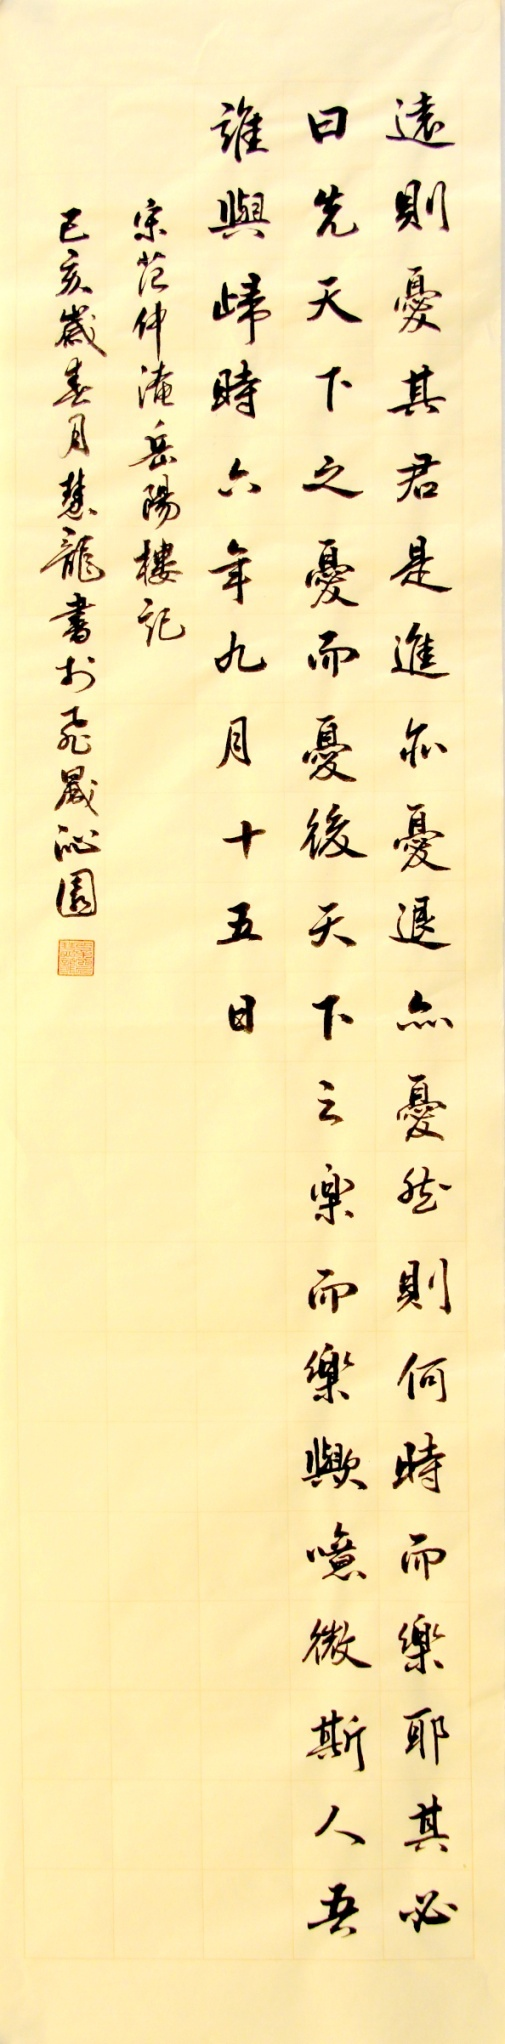 遠則憂其君是進亦憂退亦憂然則何時而樂耶其必
曰先天下之憂而憂後天下之樂而樂歟噫微斯人吾
誰與歸時六年九月十五日
宋范仲淹岳陽樓記
己亥歲春月慧龍書於飛晟沁園